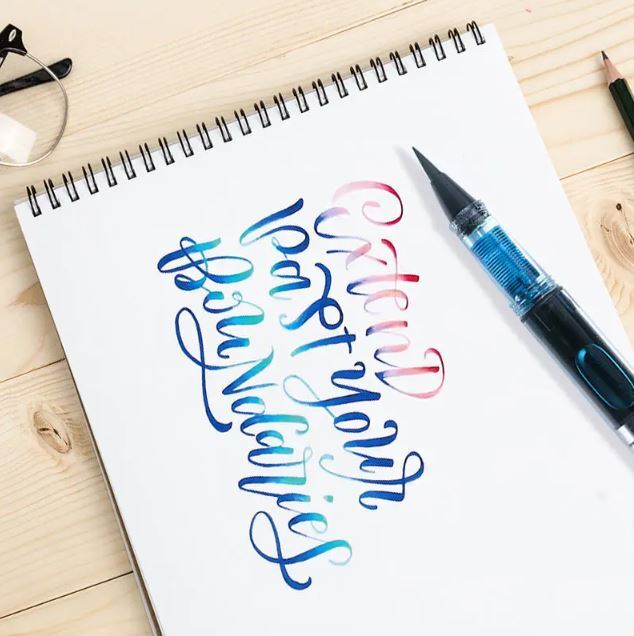 ExtenD
past your
BouNdaries